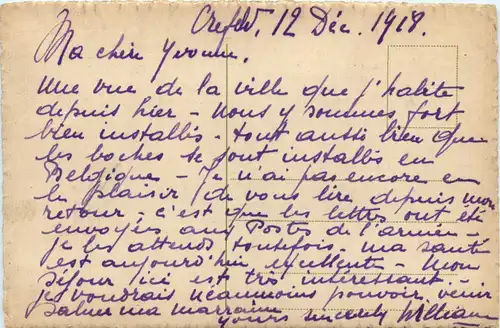 Crefeld, 12 Déc. 1918.
Ma chère Yvonne,
Une vue de la ville que j'habite
depuis hier - Nous y sommes fort
bien installés - tout aussi bien que
les boches se sont installés en
Belgique - Je n'ai pas encore eu
le plaisir de vous lire depuis mon
retour, c'est que les lettres ont été
envoyées aux Postes de l'armée -
je les attends toutefois - ma santé
est aujourd'hui excellente - Mon
séjour ici est très intéressant -
je voudrais néanmoins pouvoir venir
saluer ma marraine
yours sincerely William